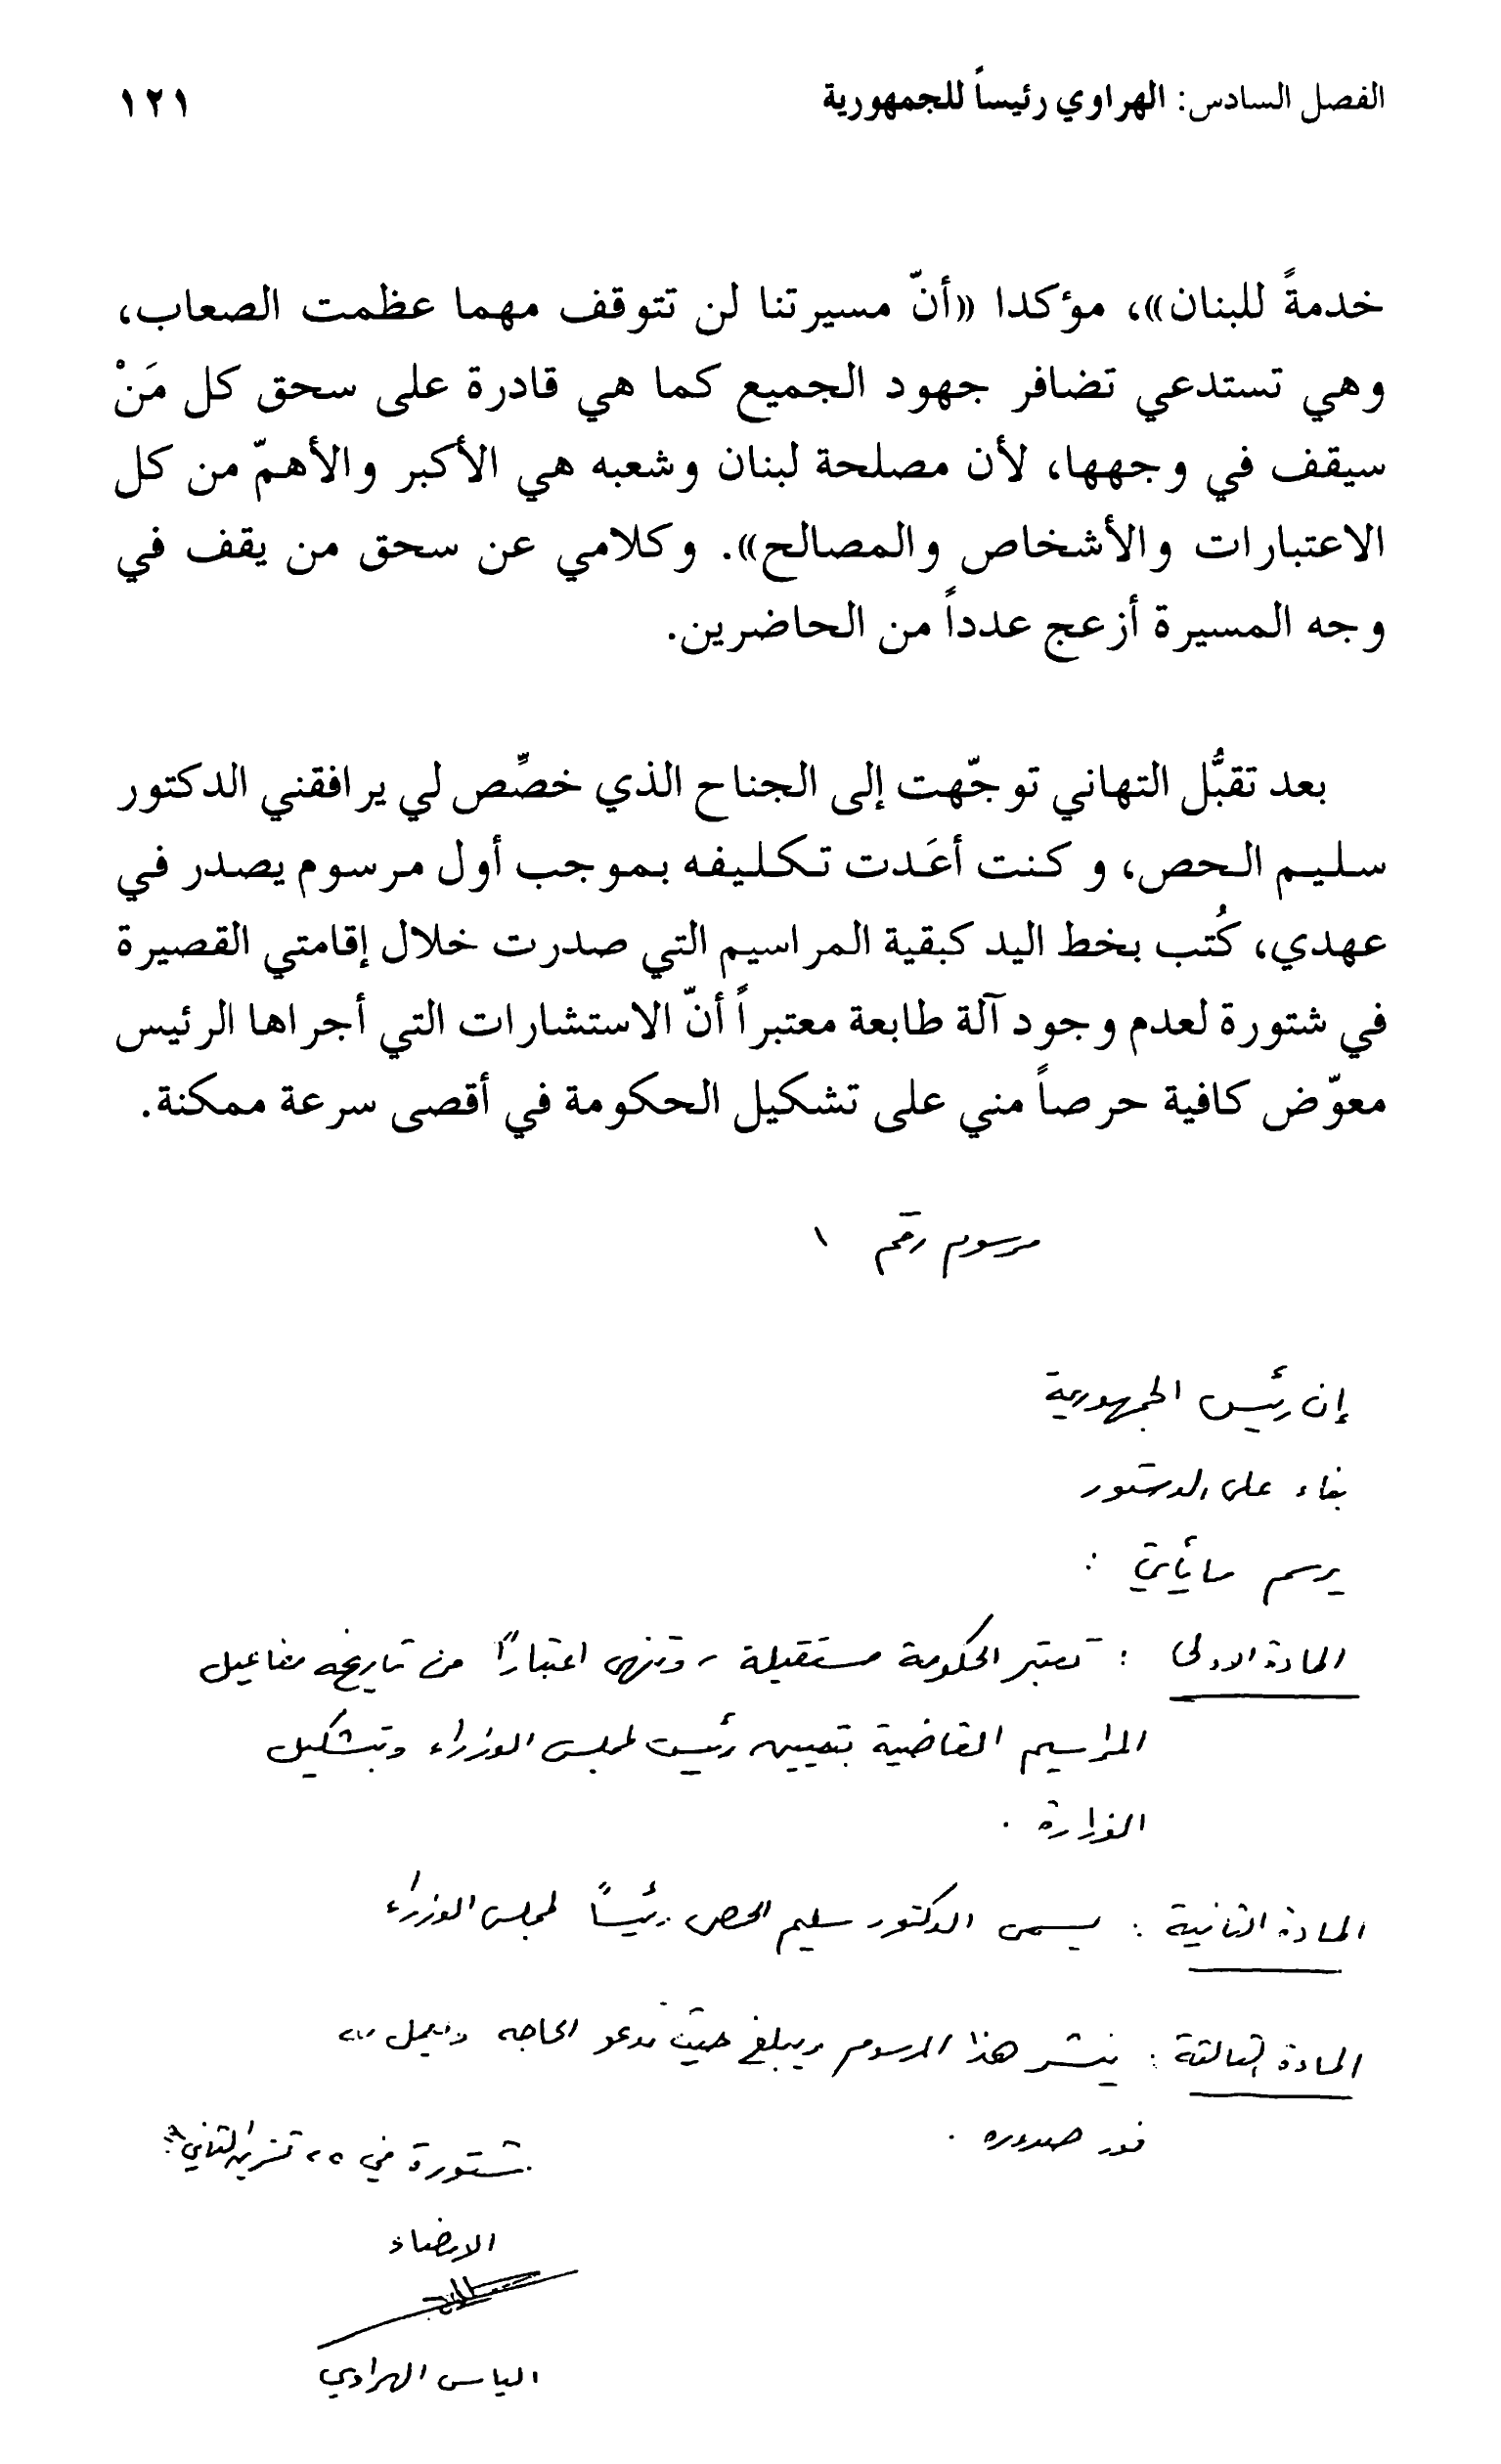 الفصل السادس: الهراوي رئيساً للجمهورية ١٢١
خدمةً للبنان»، مؤكدا «أنّ مسيرتنا لن تتوقف مهما عظمت الصعاب،
وهي تستدعي تضافر جهود الجميع كما هي قادرة على سحق كل مَنْ
سيقف في وجهها، لأن مصلحة لبنان وشعبه هي الأكبر والأهمّ من كل
الاعتبارات والأشخاص والمصالح». وكلامي عن سحق من يقف في
وجه المسيرة أزعج عدداً من الحاضرين.
بعد تقبُّل التهاني توجّهت إلى الجناح الذي خصِّص لي يرافقني الدكتور
سليم الحص، وكنت أعَدت تكليفه بموجب أول مرسوم يصدر في
عهدي، كُتب بخط اليد كبقية المراسيم التي صدرت خلال إقامتي القصيرة
في شتورة لعدم وجود آلة طابعة معتبراً أنّ الاستشارات التي أجراها الرئيس
معوّض كافية حرصاً مني على تشكيل الحكومة في أقصى سرعة ممكنة.
مرسوم رقم ١
إن رئيس الجمهورية
بناء على الدستور
يرسم ما يأتي :
المادة الاولى : تعتبر الحكومة مستقيلة، وتنهى اعتباراً من تاريخه مفاعيل
المراسيم القاضية بتعيين رئيس لمجلس الوزراء وبتشكيل
الوزارة .
المادة الثانية : يسمى الدكتور سليم الحص رئيساً لمجلس الوزراء
المادة الثالثة : ينشر هذا المرسوم ويبلغ حيث تدعو الحاجه ويعمل به
فور صدوره .
شتورة في ٢٥ تشرين الثاني
الامضاء
الياس الهراوي